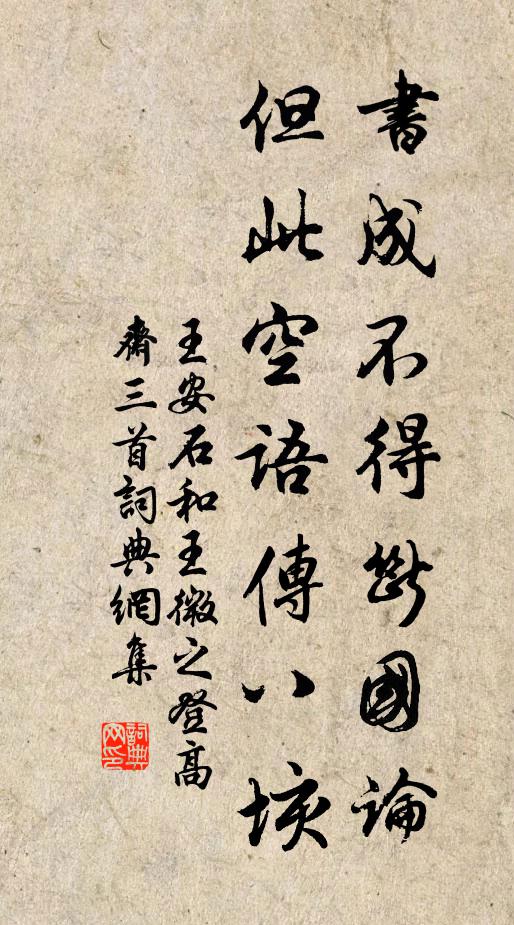 書成不得斷國論
但此空語傳八垓
王安石和王微之登高
齋三首詞典網集
詞典網印